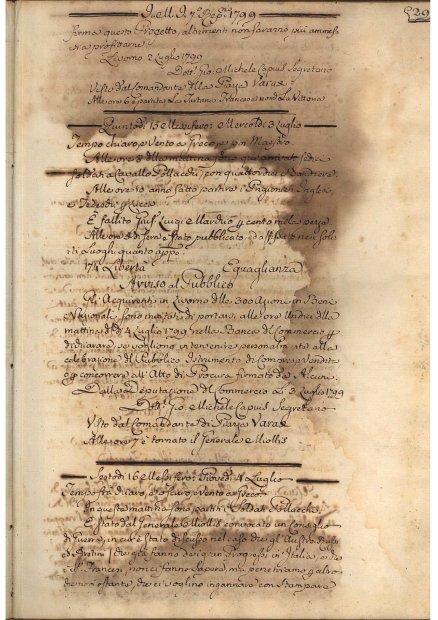 1799
529
firma questo Progetto, altrimenti non saranno più ammessi
a profittarne
Livorno 2 Luglio 1799
Dott. Gio. Michele Capuis Segretario
Visto dal Comandante della Piazza Varas
Alle ore è partita la Tartana Francese nomª La Vittoria
Quintodì 15 Messifero: Mercoldì 3 Luglio
Tempo chiaro, e Vento a Grecore poi Maestro
Alle ore 8 della mattina sono
soldati a Cavallo Pollacchi, con quattordici Bandiere
Alle ore 10 anno fatto partire i Prigionieri Inglesi
e Tedeschi
È fallito Luigi cento mila pezze
Alle ore 8 di sera è stato pubblicato, ed affisso nei soli-
ti Luoghi quanto appº
Libertà Eguaglianza
Avviso al Pubblico
Gli Acquirenti in Livorno delle 300 Azioni in Beni
Nazionali sono invitati di portarsi alle ore Undici della
mattina del dì 4 Luglio 1799 nella Banca di Commercio p
dichiarare, se vogliono intervenire personalmente alla
celebrazione del Pubblico Istrumento di Compra, e Vendita
o p concorrere all'Atto di Procura firmato da Alcuni.
Dalla Deputazione di Commercio li 3 Luglio 1799
Dott. Gio. Michele Capuis Segretario
Visto dal Comandante di Piazza Varas
Alle ore 7 è tornato il Generale Miollis
Sestodì 16 Messifero: Giovedì 4 Luglio
Tempo frà chiaro, ed oscuro, e Vento a Grecore
In questa mattina sono partiti i Soldati Pollacchi
È stato dal Generale Miollis convocato un Consiglio
di Guerra, in cui è stato discusso nel caso che gl'Austro-Russi
ed Aretini (che già fanno dei gran Progressi in Italia, onde
i Sri Francesi non ci fanno sapere, ma penetriamo p altro
ciò non ostante, che ci vogliino ingannare con Stampare